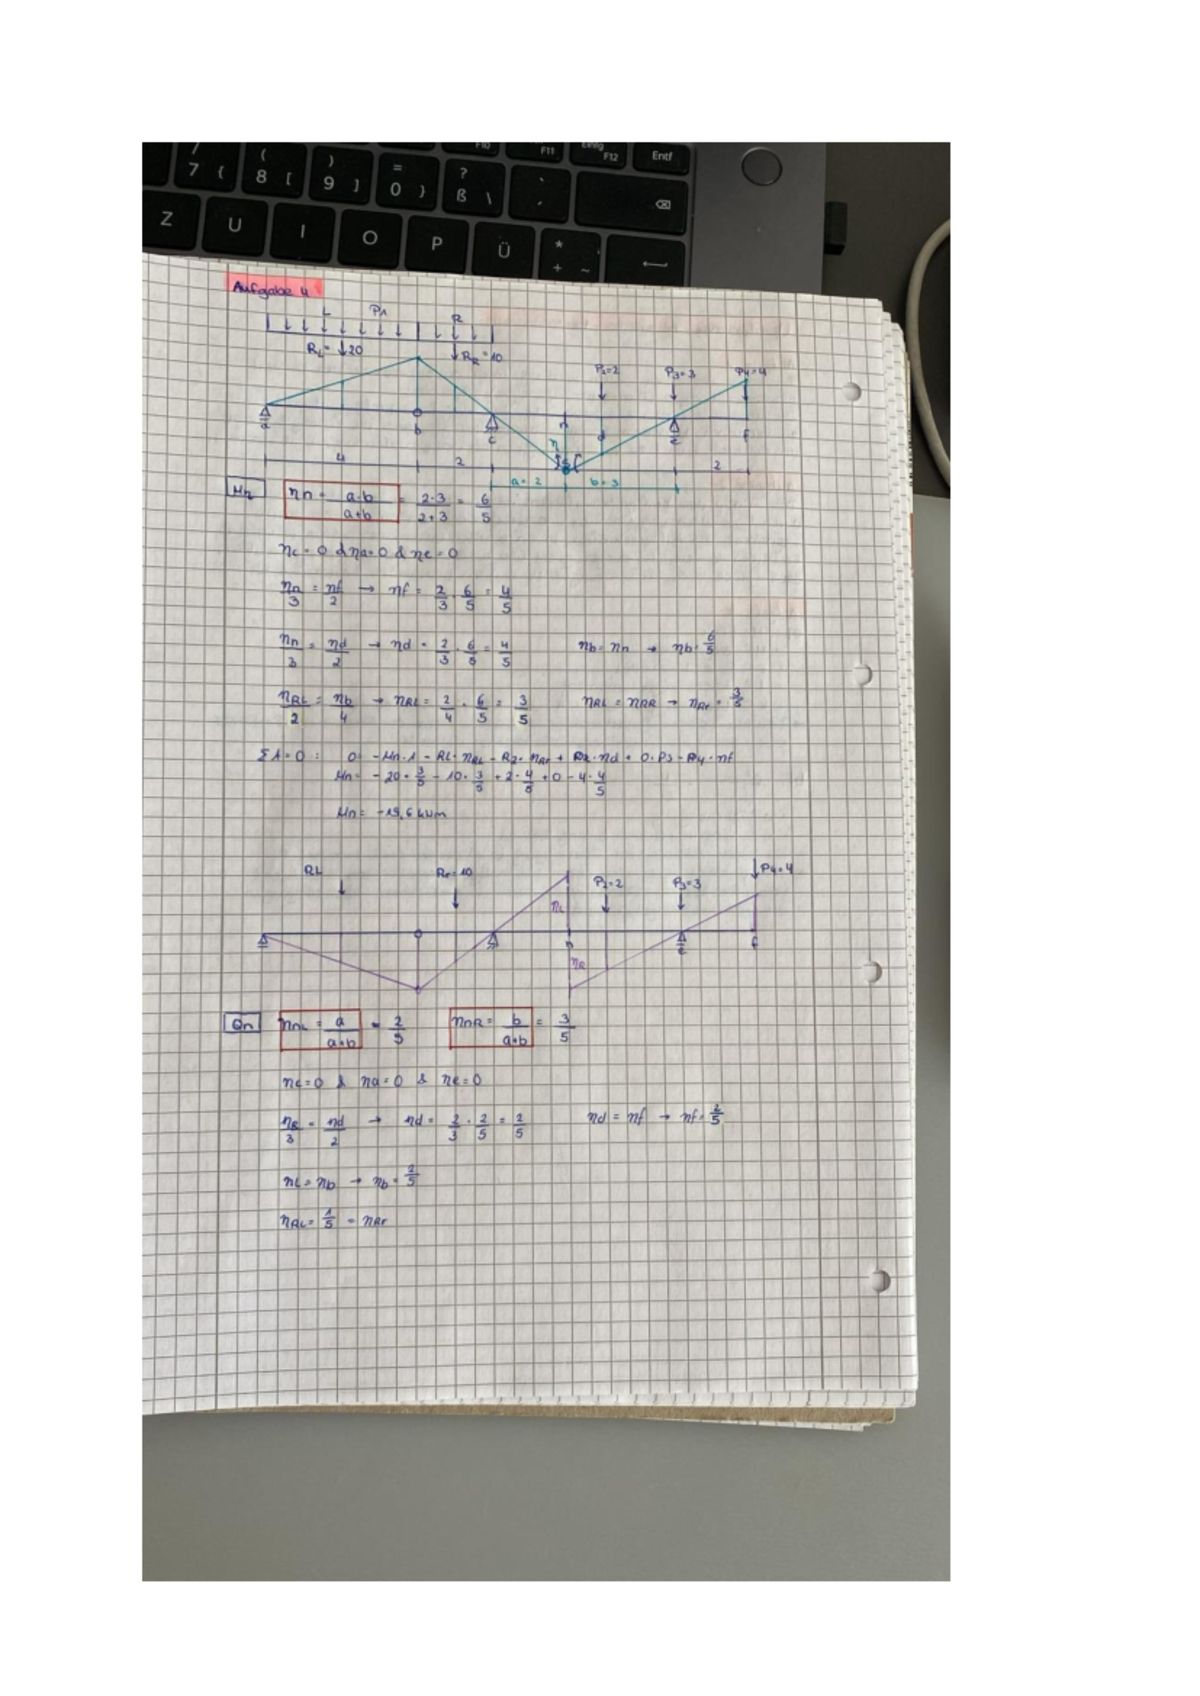 F10 F11 Einfg F12 Entf
7 { 8 [ 9 ] 0 } ß \ ?
Z U I O P Ü * + ~
Aufgabe 4
L P1 R
RL= ↓20 RR=10
P2=2 P3=3 P4=4
a b c n d e f
4 2 a=2 b=3 2
Mn ηn = a·b / a+b = 2·3 / 2+3 = 6/5
ηc = 0 & ηa=0 & ηe=0
ηn/3 = ηf/2 → ηf = 2/3 · 6/5 = 4/5
ηn/3 = ηd/2 → ηd = 2/3 · 6/5 = 4/5 ηb = ηn → ηb= 6/5
ηRL/2 = ηb/4 → ηRL = 2/4 · 6/5 = 3/5 ηRL = ηRR → ηRr = 3/5
ΣA=0 : 0= -Mn·1 - RL·ηRL - R2·ηRr + P2·ηd + 0·P3 - P4·ηf
Mn= -20·3/5 - 10·3/5 + 2·4/5 + 0 - 4·4/5
Mn= -19,6 kNm
RL Rr=10 P2=2 P3=3 P4=4
ηL
n e f
ηR
Qn ηnL = a / a+b = 2/5 ηnR = b / a+b = 3/5
ηc=0 & ηa=0 & ηe=0
ηR/3 = ηd/2 → ηd = 2/3 · 2/5 = 2/5 ηd = ηf → ηf= 2/5
ηL = ηb → ηb = 2/5
ηRL= 1/5 = ηRr